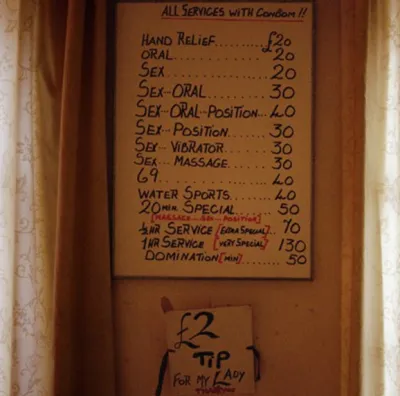 ALL SERVICES WITH CONDOM!!
HAND RELIEF......... £20
ORAL............... 20
SEX................ 20
SEX··ORAL......... 30
SEX··ORAL··POSITION... 40
SEX··POSITION....... 30
SEX··VIBRATOR....... 30
SEX··MASSAGE....... 30
69................. 40
WATER SPORTS....... 40
20 MIN SPECIAL...... 50
[MASSAGE···SEX···POSITION]
½ HR SERVICE [EXTRA SPECIAL].. 70
1 HR SERVICE [VERY SPECIAL] 130
DOMINATION [MIN]......... 50
£2
TIP
FOR MY LADY